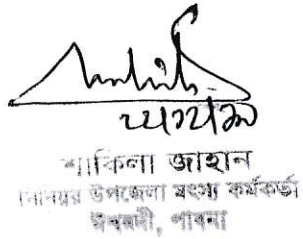 শাকিলা জাহান
সিনিয়র উপজেলা মৎস্য কর্মকর্তা
ঈশ্বরদী, পাবনা